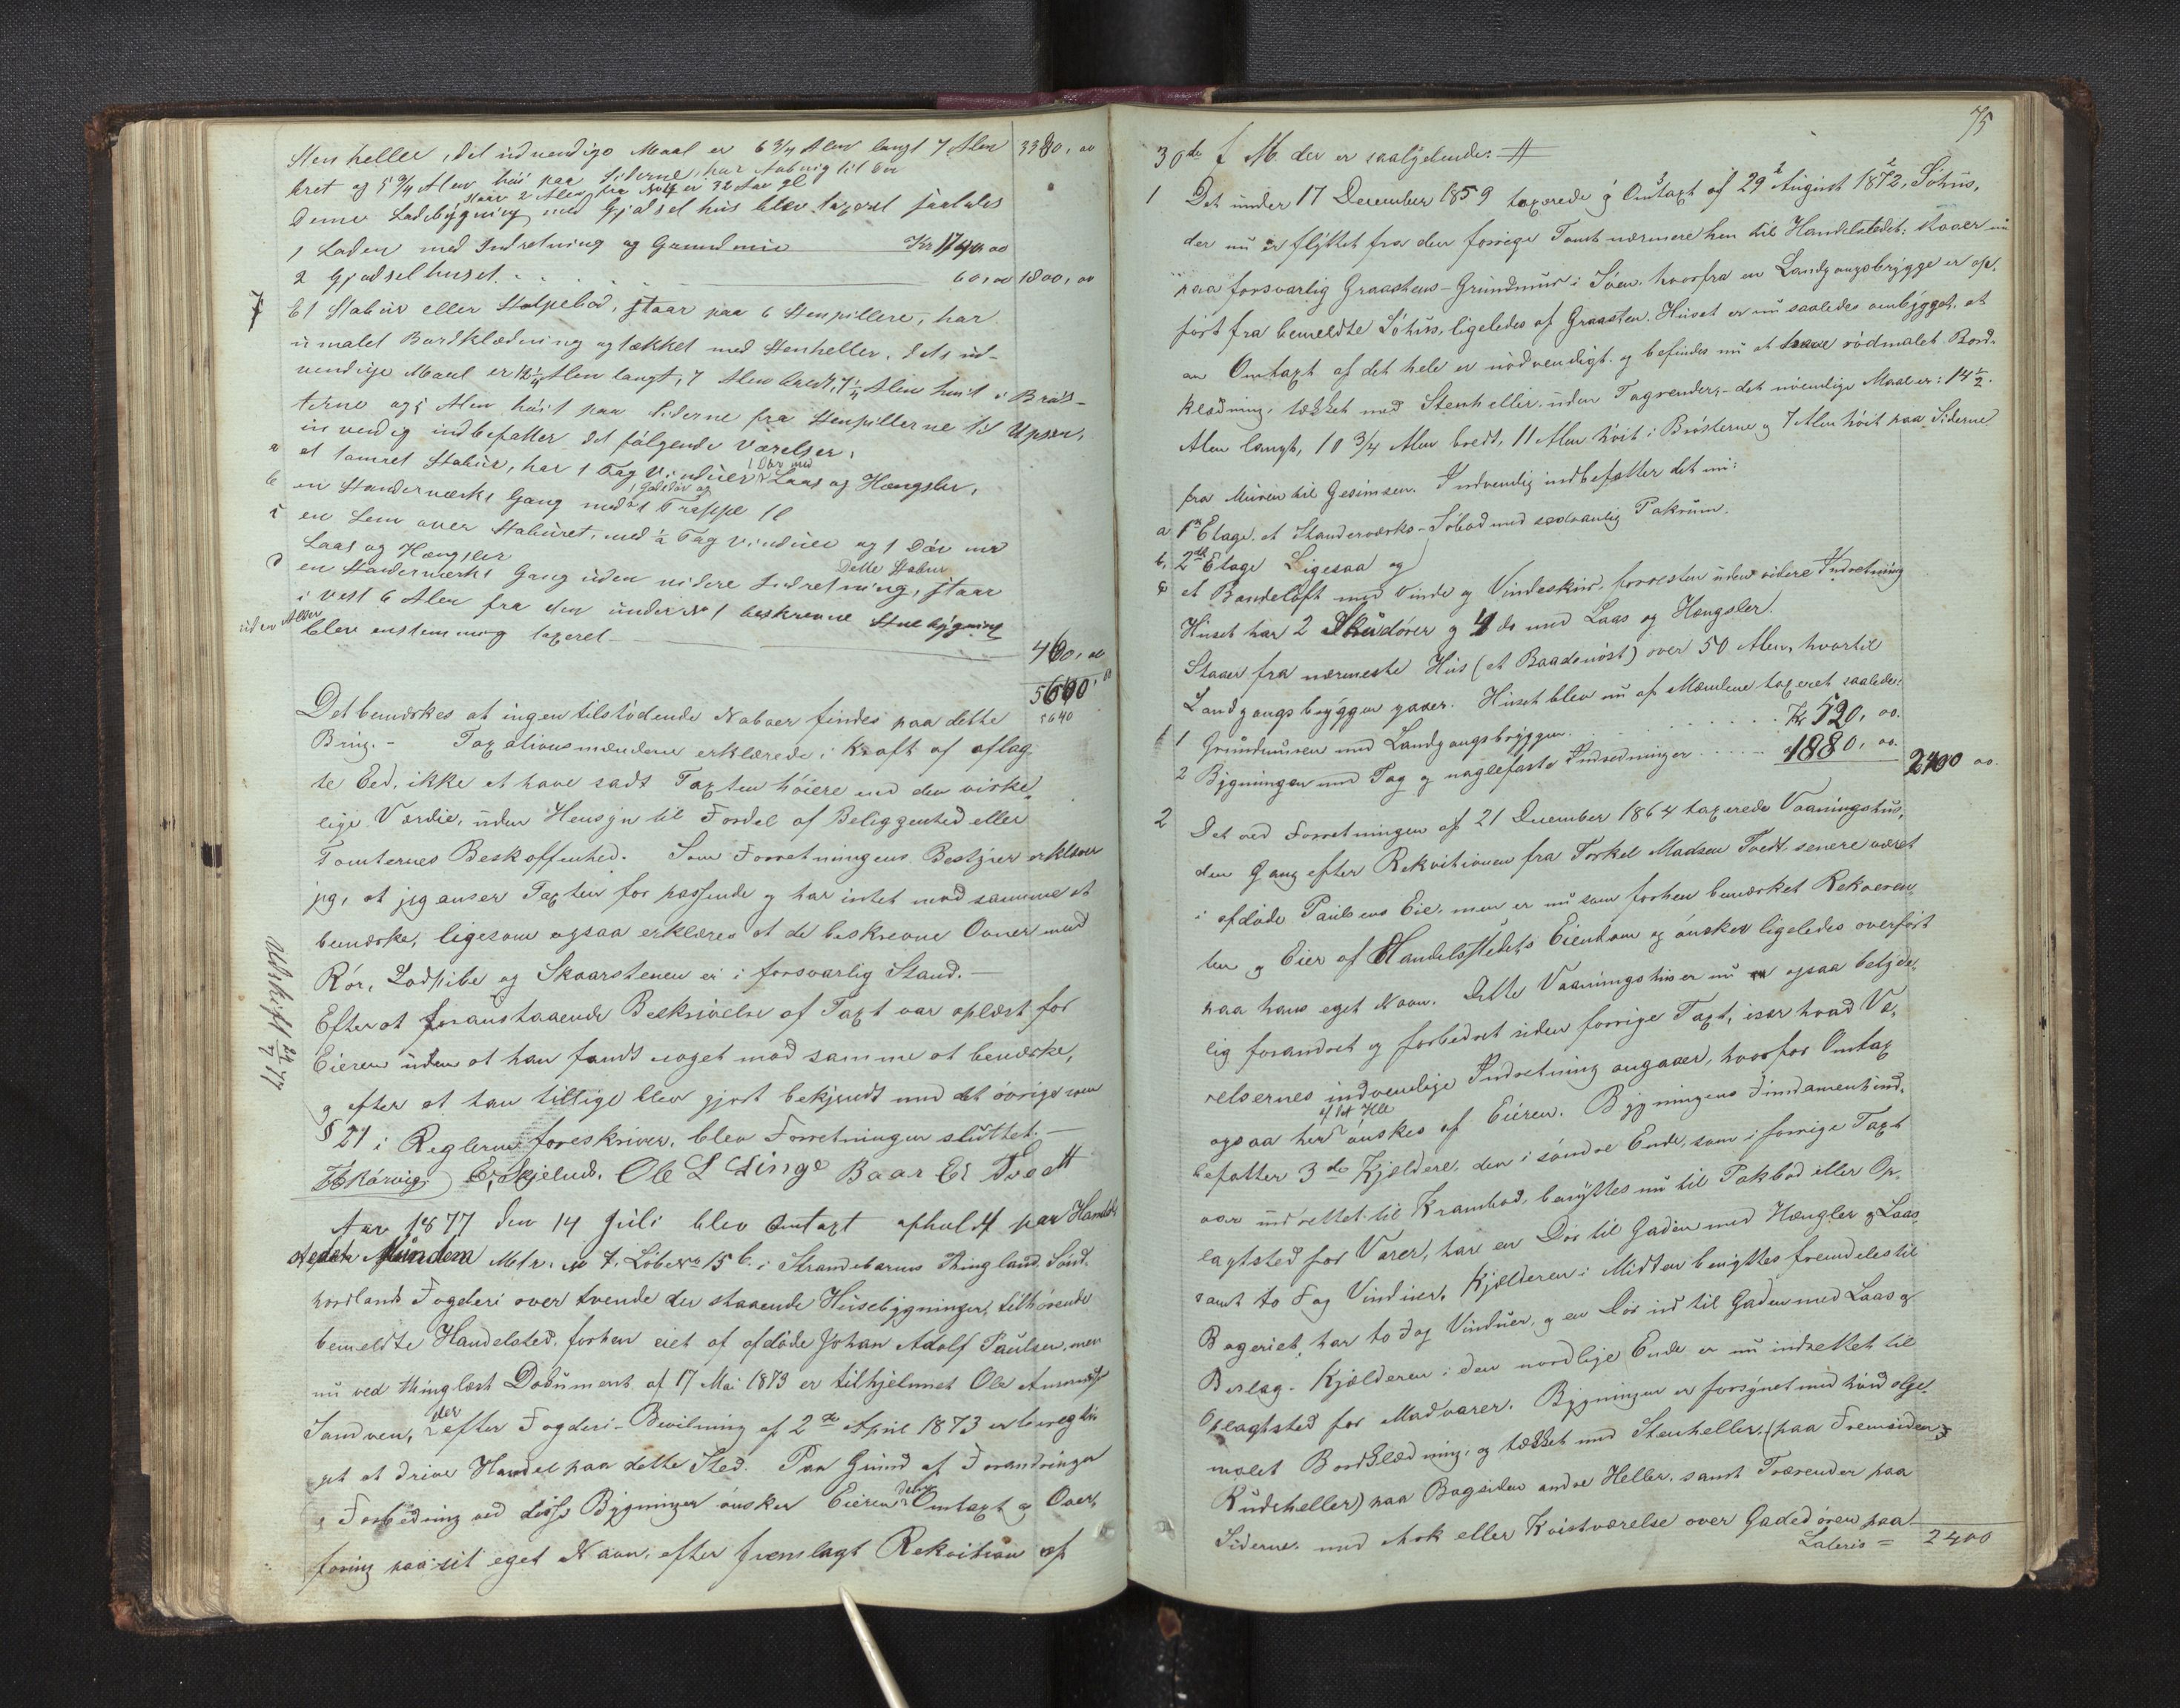 Stenheller, det udvendige Maal er 6 3/4 Alen langt 7 Alen 3380, 00
bret og 5 3/4 Alen höi paa Siderne, har Aabning til
staar 2 Alen fra No 4 er 32 Alen
Denne Ladebygning med Gjödselhus blev taxeret saaledes
1 Laden med Indretning og Grundmur Kr 1740 00
2 Gjödselhuset. 60,00 1800,00
7 Et Stabur eller Stolpebod, staar paa 6 Stenpillere, har
umalet Bordklædning og tækket med Stenheller, dets ud-
vendige Maal er 12 1/4 Alen langt, 7 Alen bredt, 7 1/4 Alen höit i Brös-
terne og 5 Alen höit paa Siderne fra Stenpillerne til Upsen,
invendig indbefatter det fölgende Værelser,
a et tömret Stabur, har 1 Fag Vinduer 1 Dör med Laas og Hængsler,
b en Standerværks Gang med 1 Gadedör og 1 Trappe
c en Lem over Staburet, med 1/2 Fag Vinduer og 1 Dör med
Laas og Hængsler
d en Standerværks Gang uden videre Indretning, Dette Stabur staar
i vest 6 Alen fra den under No 1 beskrevne Stuebygning
blev enstemmig taxeret 460,00
5640,00
5640
Det bemærkes at ingen tilstödende Naboer findes paa dette
Brug. - Taxationsmændene erklærede i Kraft af aflag-
te Eed, ikke at have sadt Taxten höiere end den virke-
lige Værdie, uden Hensyn til Fordel af Beliggenhed eller
Tomternes Beskaffenhed. Som Forretningens Bestyrer erklærer
jeg, at jeg anser Taxten for passende og har intet mod samme at
bemærke, ligesom ogsaa erklæres at de beskrevne Ovner med
Rör, Lodpibe og Skaarstenen er i forsvarlig Stand. -
Efter at foranstaaende Beskrivelse af Taxt var oplæst for
Eieren uden at han fandt noget mod samme at bemærke,
og efter at han tillige blev gjort bekjendt med det övrige som
§ 21 i Reglerne foreskriver, blev Forretningen sluttet. -
Udskrift 24/7 77
Skjelnes. Ole L Linge Baar Tvedt
Aar 1877 den 14 Juli blev Omtaxt afholdt paa Handels
stedet Mundem Matr. No 7, Löbe No 15 b. i Strandebarms Thinglaug, Sönd-
hordlands Fogderi over tvende der staaende Husebygninger, tilhörende
bemeldte Handelsted, forhen eiet af afdöde Johan Adolf Paulsen, men
nu ved thinglæst Document af 17 Mai 1873 er tilhjelmet Ole
Sandven, der efter Fogderi-Bevilning af 2den April 1873 er beregti-
get at drive Handel paa dette Sted. Paa Grund af Forandringer
og Forbedring ved disse Bygninger önsker Eieren deres Omtaxt og Over-
föring paa sit eget Navn, efter fremlagt Rekvition af
75
30de f. M. der er saalydende: #
1 Det under 17 December 1859 taxerede og Omtaxt af 29 August 1872, Söhus,
der nu er flyttet fra den forrige Tomt nærmere hen til Handelstedet, staaer nu
paa forsvarlig Graastens-Grundmur i Söen, hvorfra en Landgangsbrygge er op-
fört fra bemeldte Söhus, ligeledes af Graasten. Huset er nu saaledes ombygget, at
en Omtaxt af det hele er nödvendigt, og befindes nu at have rödmalet Bord-
klædning, tækket med Stenheller, uden Tagrender, - det udvendige Maal er: 14 1/2
Alen langt, 10 3/4 Alen bredt, 11 Alen höit i Brösterne og 7 Alen höit paa Siderne
fra Muren til Gesimsen. Indvendig indbefatter det nu:
a 1ste Etage, et Standerværks-Söbod med sædvanlig Pakrum.
b, 2den Etage Ligesaa og
c et Bandeloft med Vinde og Vindeskur, forresten uden videre Indretning
Huset har 2 Skuddörer og 4 do med Laas og Hængsler.
Staaer fra nærmeste Hus (et Baadenöst) over 50 Alen, hvortil
Landgangsbryggen gaaer. Huset blev nu af Mændene taxeret saaledes:
1 Grundmuren med Landgangsbryggen. Kr 520, 00.
2 Bygningen med Tag og naglefaste Indredninger 1880, 00. 2400 00.
2 Det ved Forretningen af 21 December 1864 taxerede Vaaningshus,
den Gang efter Rekvitionen fra Torkel Madsen Tvedt, senere været
i afdöde Paulsens Eie, men er nu som forhen bemærket Rekveren-
ten og Eier af Handelsstedets Eiendom og önsker ligeledes overfört
paa hans eget Navn. Dette Vaaningshus er nu ogsaa betyde-
lig forandret og forbedret siden forrige Taxt, især hvad Væ-
relsernes indvendige Indretning angaaer, hvorfor Omtax
ogsaa her önskes af Eieren. Bygningens Fundament ind-
befatter 3de Kjeldere, den i söndre Ende, som i forrige Taxt
var indrettet til Krambod, benyttes nu til Pakbod eller Op-
lagtsted for Varer, har en Dör til Gaden med Hængler og Laas,
samt to Fag Vinduer. Kjælderen i Midten benyttes fremdeles til
Bageriet, har to Fag Vinduer, og en Dör ud til Gaden med Laas og
Beslag. Kjælderen i den nordlige Ende er nu indrettet til
Oplagtsted for Madvarer. Bygningen er forsynet med hvid olge-
malet Bordklædning, og tækket med Stenheller, (paa Fremsiden
Rudeheller) paa Bagsiden andre Heller, samt Trærender paa
Siderne, med Ark eller Kvistværelse over Gadedören paa
Lateris = 2400